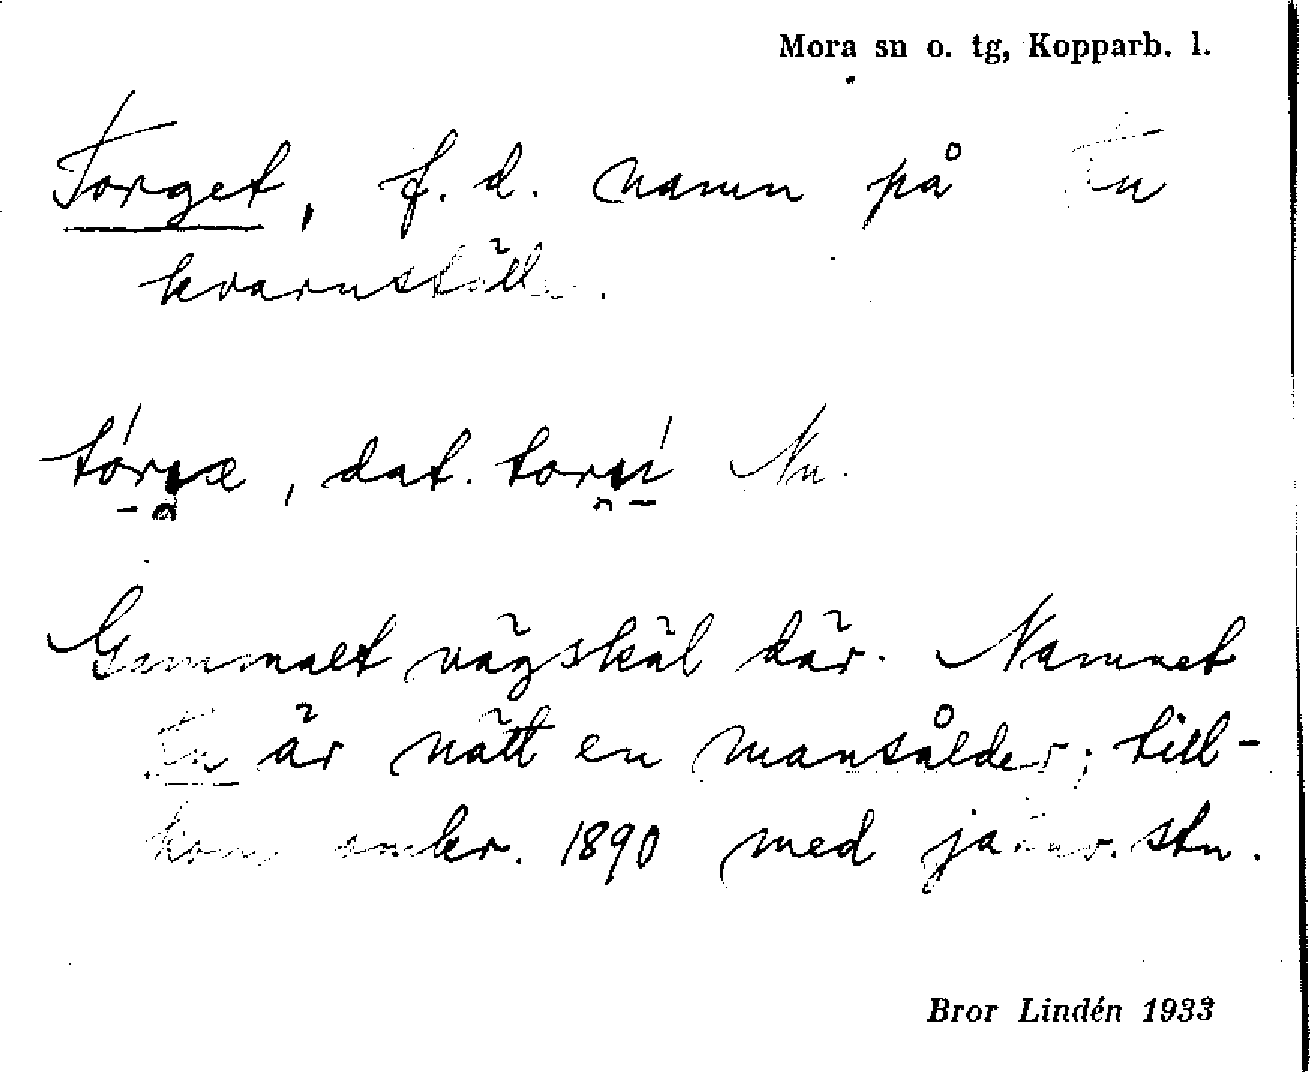 Mora sn o. tg, Kopparb. l.
Torget, f. d. namn på
kvarnställe.
dat.
Gammalt vägskäl där. Namnet
är nätt en mansålder; till-
kom omkr. 1890 med järnv. stn.
Bror Lindén 1933